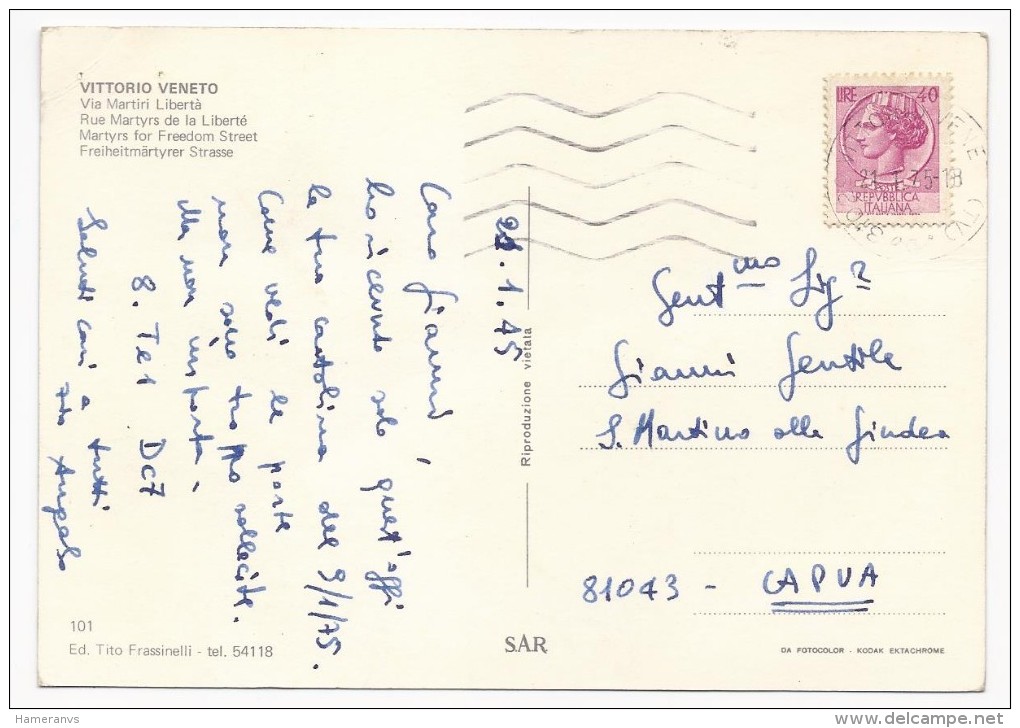 VITTORIO VENETO
Via Martiri Libertà
Rue Martyrs de la Liberté
Martyrs for Freedom Street
Freiheitmärtyrer Strasse
LIRE 40
POSTE
REPVBBLICA
ITALIANA
21.1.75-18
(TV)
21.1.75
Caro Gianni,
ho ricevuto solo quest'oggi
la tua cartolina del 9/1/75.
Come vedi le poste
non sono troppo sollecite.
Ma non importa.
8. Te1 DC7
Saluti cari a tutti
zio Angelo
Riproduzione vietata
Gent.mo Sig.
Gianni Gentile
S. Martino alla Giudea
81043 - CAPUA
101
Ed. Tito Frassinelli - tel. 54118
SAR
DA FOTOCOLOR - KODAK EKTACHROME
Hameranvs
www.delcampe.net